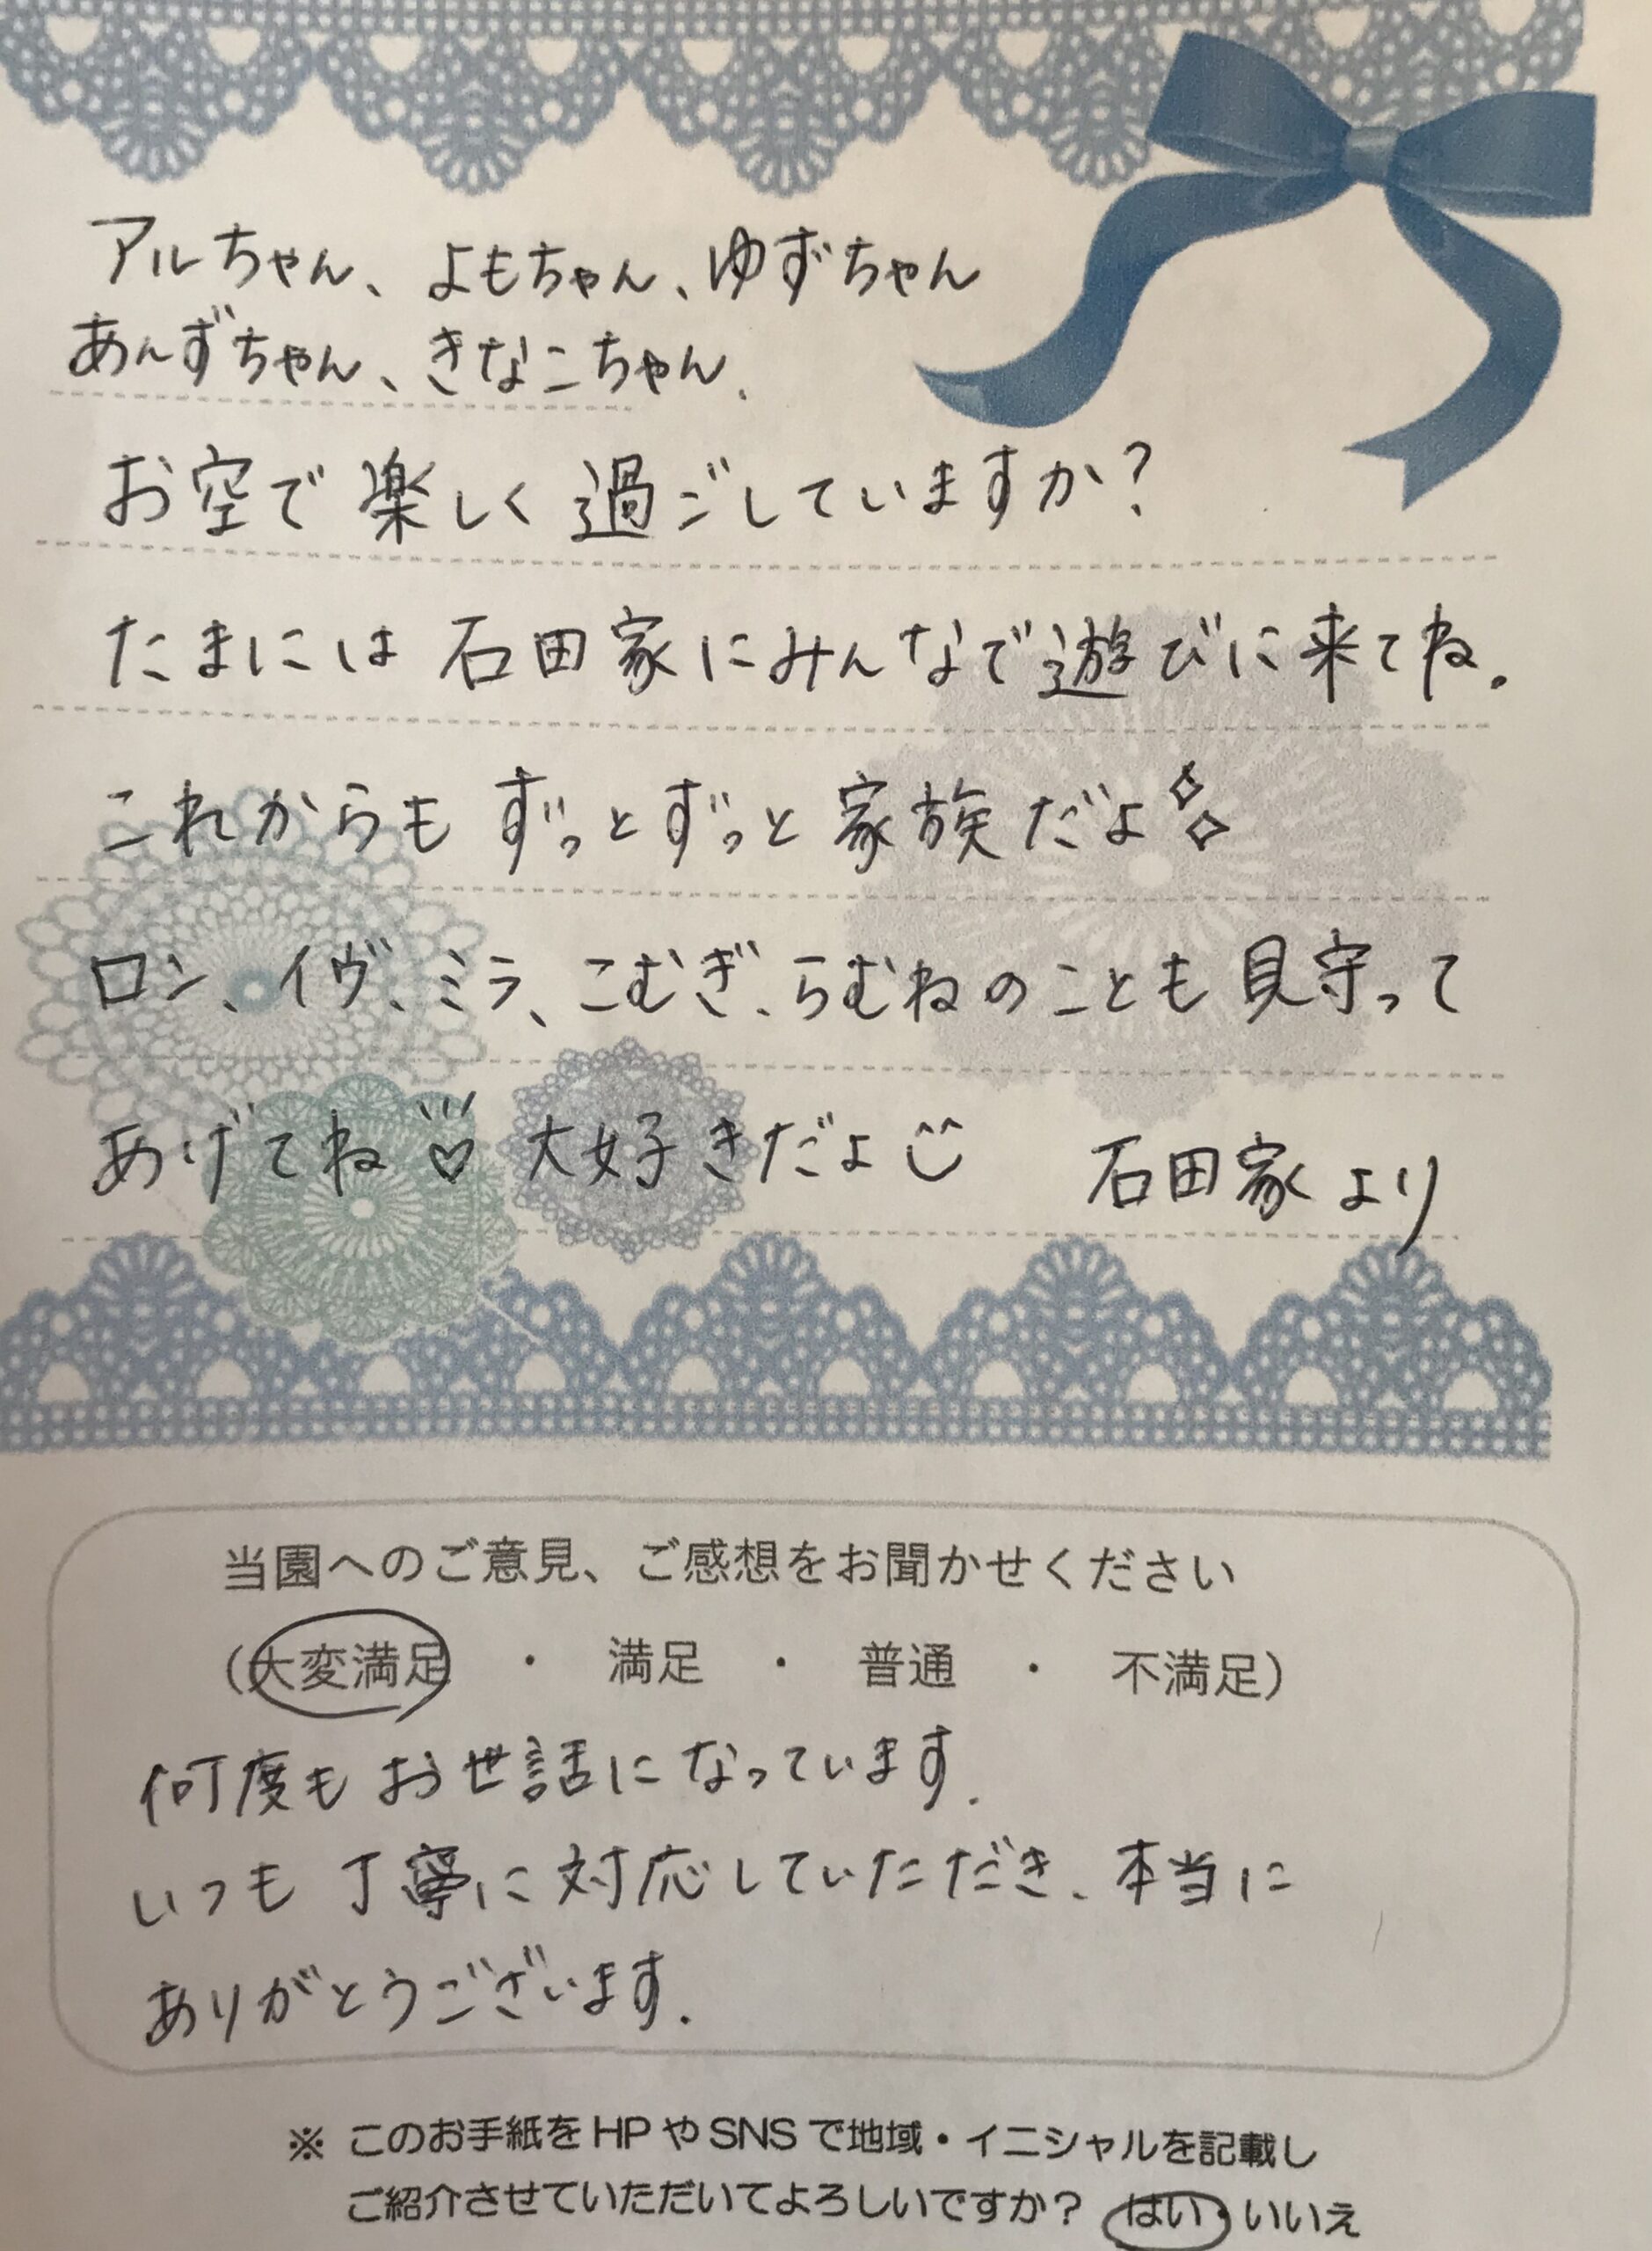 アルちゃん、よもちゃん、ゆずちゃん
あんずちゃん、きなこちゃん、
お空で楽しく過ごしていますか?
たまには石田家にみんなで遊びに来てね。
これからもずっとずっと家族だよ
ロン、イヴ、ミラ、こむぎ、らむねのことも見守って
あげてね♡ 大好きだよ 石田家より
当園へのご意見、ご感想をお聞かせください
(大変満足 ・ 満足 ・ 普通 ・ 不満足)
何度もお世話になっています。
いつも丁寧に対応していただき、本当に
ありがとうございます。
※ このお手紙をHPやSNSで地域・イニシャルを記載し
ご紹介させていただいてよろしいですか? はい・いいえ